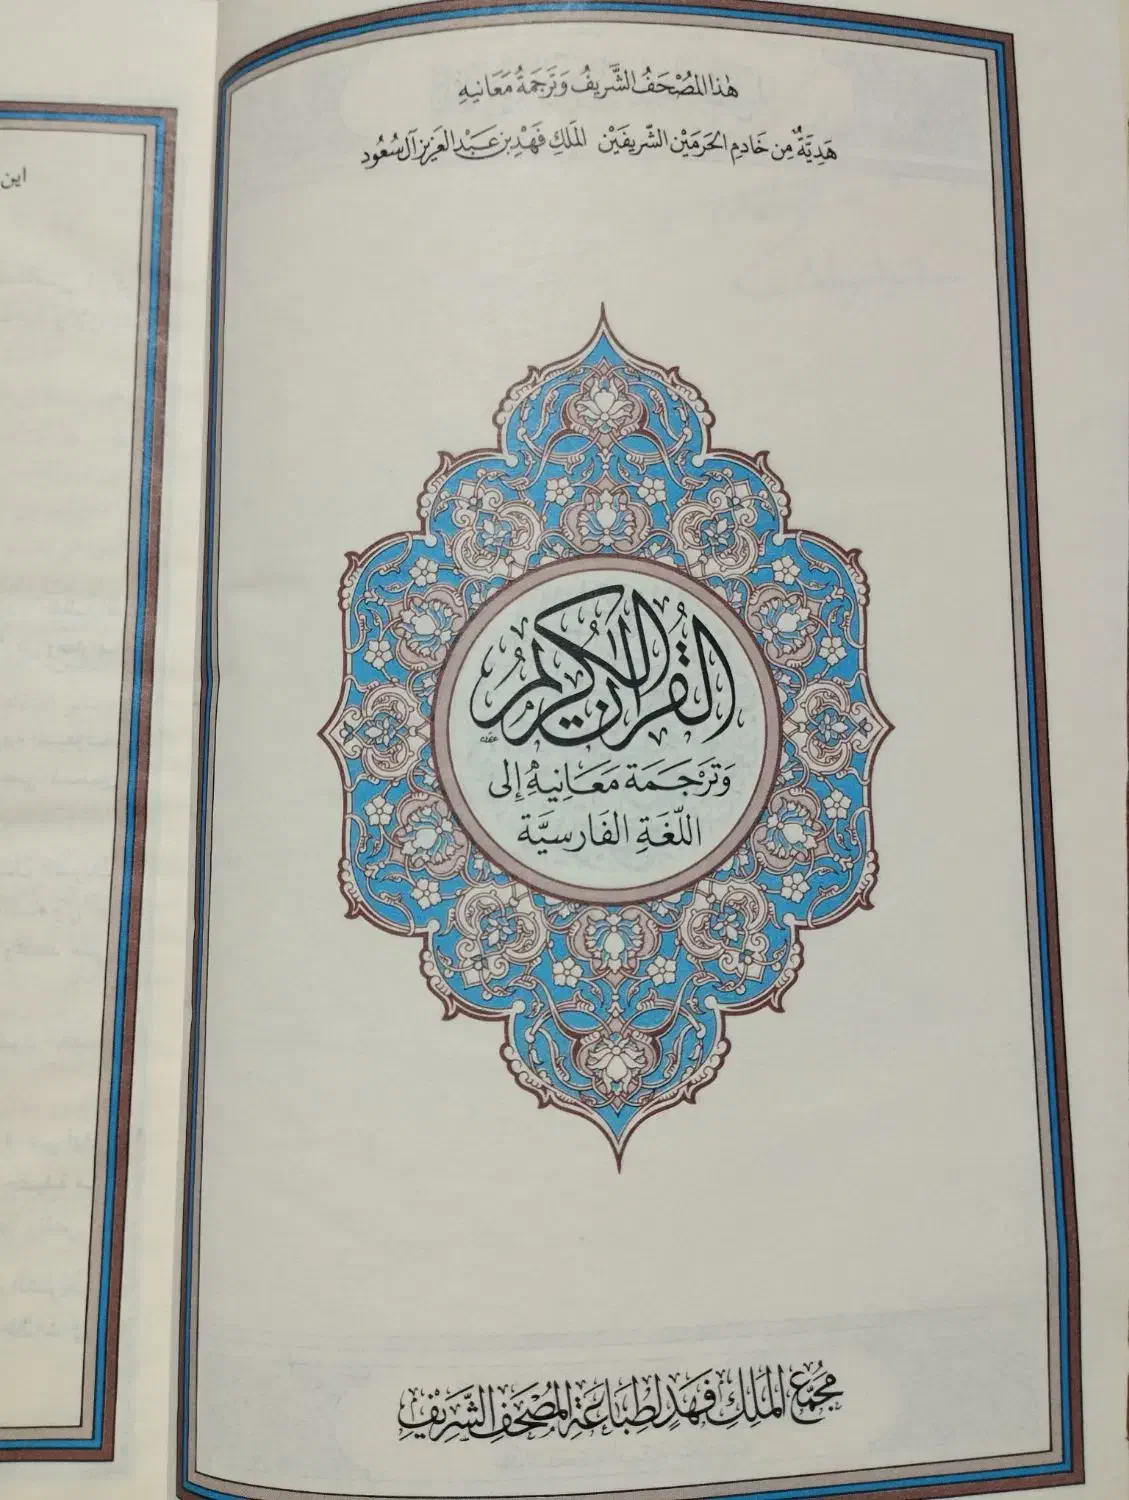 هٰذا المُصْحَفُ الشَّريفُ وَتَرجَمَةُ مَعَانيهِ
هَدِيَّةٌ مِن خَادِمِ الحَرَمَيْن الشّريفَيْن المَلكِ فَهْدِ بن عَبْد العَزيز آل سُعُود
القُرآن الكَرِيمُ
وَتَرْجَمَة مَعَانِيهِ إلى
اللّغَةِ الفَارسيَّة
مُجَمَّعُ المَلِكِ فَهَد لِطِبَاعَةِ المُصْحَفِ الشَّرِيْفِ
این